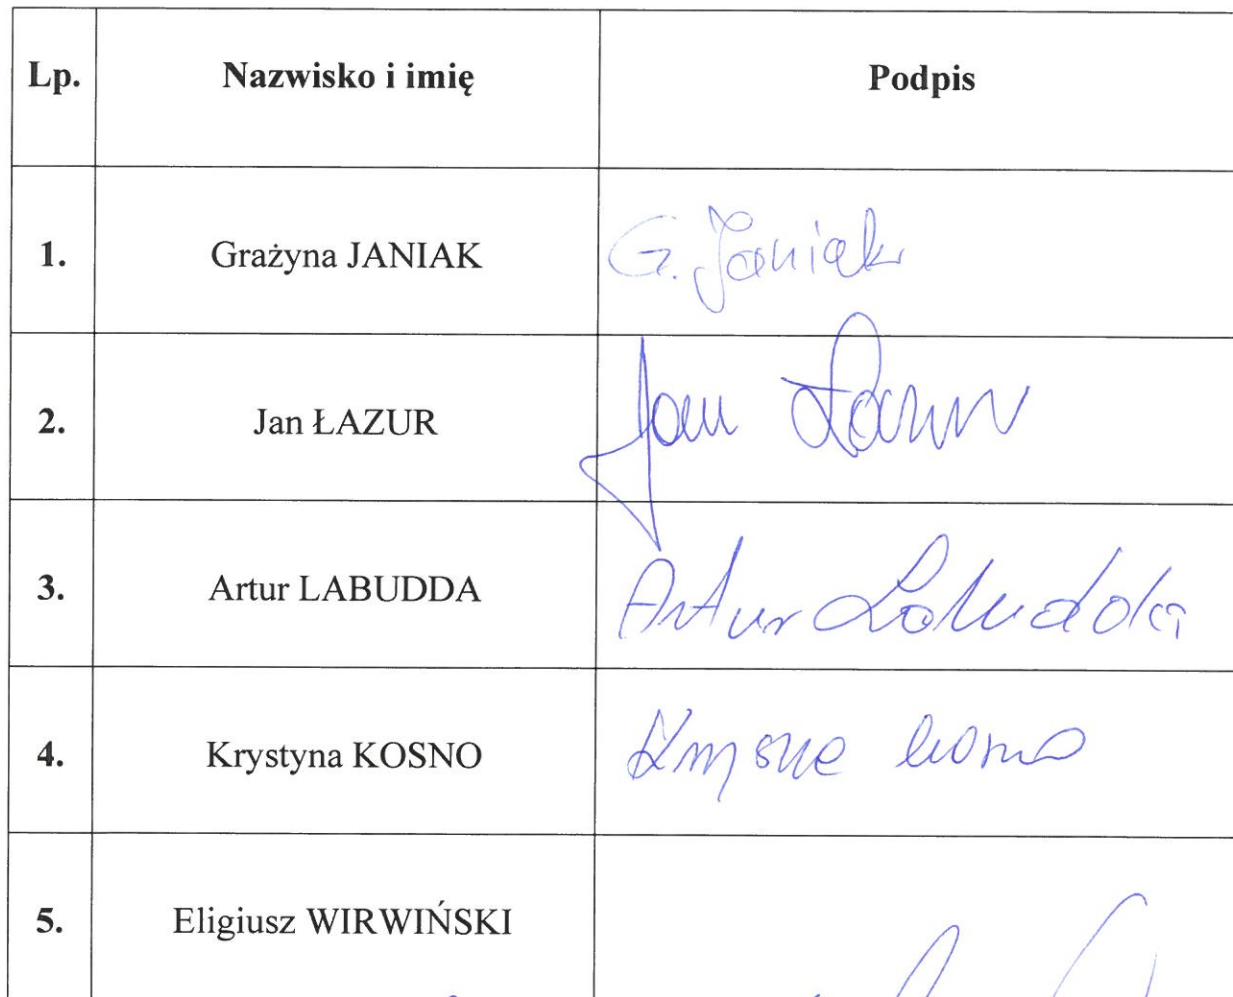 Lp. Nazwisko i imię Podpis
1. Grażyna JANIAK G. Janiak
2. Jan ŁAZUR Jan Łazur
3. Artur LABUDDA Artur Labudda
4. Krystyna KOSNO
5. Eligiusz WIRWIŃSKI